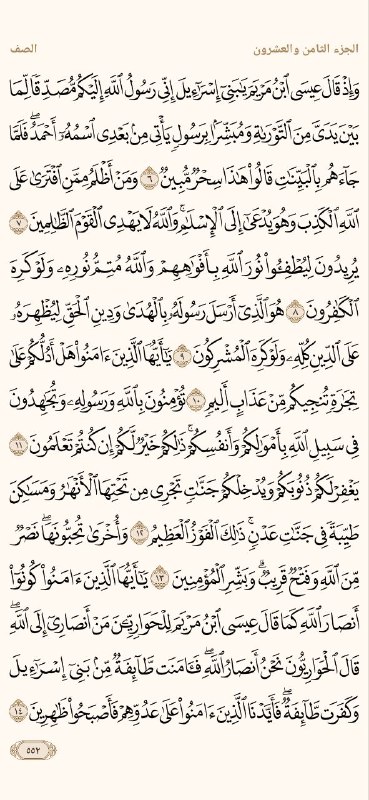 الجزء الثامن والعشرون
الصف
وَإِذْ قَالَ عِيسَى ٱبْنُ مَرْيَمَ يَـٰبَنِىٓ إِسْرَٰٓءِيلَ إِنِّى رَسُولُ ٱللَّهِ إِلَيْكُم مُّصَدِّقًا لِّمَا
بَيْنَ يَدَىَّ مِنَ ٱلتَّوْرَىٰةِ وَمُبَشِّرًۢا بِرَسُولٍ يَأْتِى مِنۢ بَعْدِى ٱسْمُهُۥٓ أَحْمَدُ ۖ فَلَمَّا
جَآءَهُم بِٱلْبَيِّنَـٰتِ قَالُوا۟ هَـٰذَا سِحْرٌ مُّبِينٌ ٦ وَمَنْ أَظْلَمُ مِمَّنِ ٱفْتَرَىٰ عَلَى
ٱللَّهِ ٱلْكَذِبَ وَهُوَ يُدْعَىٰٓ إِلَى ٱلْإِسْلَـٰمِ ۚ وَٱللَّهُ لَا يَهْدِى ٱلْقَوْمَ ٱلظَّـٰلِمِينَ ٧
يُرِيدُونَ لِيُطْفِـُٔوا۟ نُورَ ٱللَّهِ بِأَفْوَٰهِهِمْ وَٱللَّهُ مُتِمُّ نُورِهِۦ وَلَوْ كَرِهَ
ٱلْكَـٰفِرُونَ ٨ هُوَ ٱلَّذِىٓ أَرْسَلَ رَسُولَهُۥ بِٱلْهُدَىٰ وَدِينِ ٱلْحَقِّ لِيُظْهِرَهُۥ
عَلَى ٱلدِّينِ كُلِّهِۦ وَلَوْ كَرِهَ ٱلْمُشْرِكُونَ ٩ يَـٰٓأَيُّهَا ٱلَّذِينَ ءَامَنُوا۟ هَلْ أَدُلُّكُمْ عَلَىٰ
تِجَـٰرَةٍ تُنجِيكُم مِّنْ عَذَابٍ أَلِيمٍ ١٠ تُؤْمِنُونَ بِٱللَّهِ وَرَسُولِهِۦ وَتُجَـٰهِدُونَ
فِى سَبِيلِ ٱللَّهِ بِأَمْوَٰلِكُمْ وَأَنفُسِكُمْ ۚ ذَٰلِكُمْ خَيْرٌ لَّكُمْ إِن كُنتُمْ تَعْلَمُونَ ١١
يَغْفِرْ لَكُمْ ذُنُوبَكُمْ وَيُدْخِلْكُمْ جَنَّـٰتٍ تَجْرِى مِن تَحْتِهَا ٱلْأَنْهَـٰرُ وَمَسَـٰكِنَ
طَيِّبَةً فِى جَنَّـٰتِ عَدْنٍ ۚ ذَٰلِكَ ٱلْفَوْزُ ٱلْعَظِيمُ ١٢ وَأُخْرَىٰ تُحِبُّونَهَا ۖ نَصْرٌ
مِّنَ ٱللَّهِ وَفَتْحٌ قَرِيبٌ ۗ وَبَشِّرِ ٱلْمُؤْمِنِينَ ١٣ يَـٰٓأَيُّهَا ٱلَّذِينَ ءَامَنُوا۟ كُونُوٓا۟
أَنصَارَ ٱللَّهِ كَمَا قَالَ عِيسَى ٱبْنُ مَرْيَمَ لِلْحَوَارِيِّـۧنَ مَنْ أَنصَارِىٓ إِلَى ٱللَّهِ ۖ
قَالَ ٱلْحَوَارِيُّونَ نَحْنُ أَنصَارُ ٱللَّهِ ۖ فَـَٔامَنَت طَّآئِفَةٌ مِّنۢ بَنِىٓ إِسْرَٰٓءِيلَ
وَكَفَرَت طَّآئِفَةٌ ۖ فَأَيَّدْنَا ٱلَّذِينَ ءَامَنُوا۟ عَلَىٰ عَدُوِّهِمْ فَأَصْبَحُوا۟ ظَـٰهِرِينَ ١٤
٥٥٢